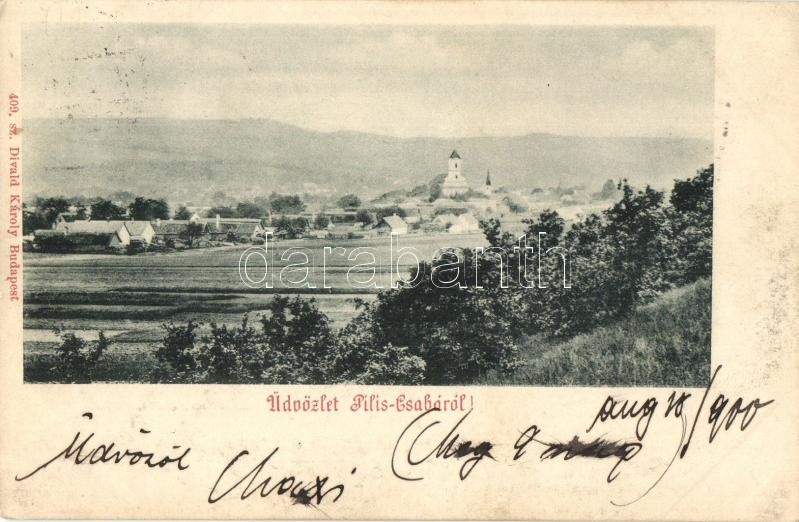 409. sz. Divald Károly Budapest
darabanth
Üdvözlet Pilis-Csabáról!
aug 18/900
Üdvözöl